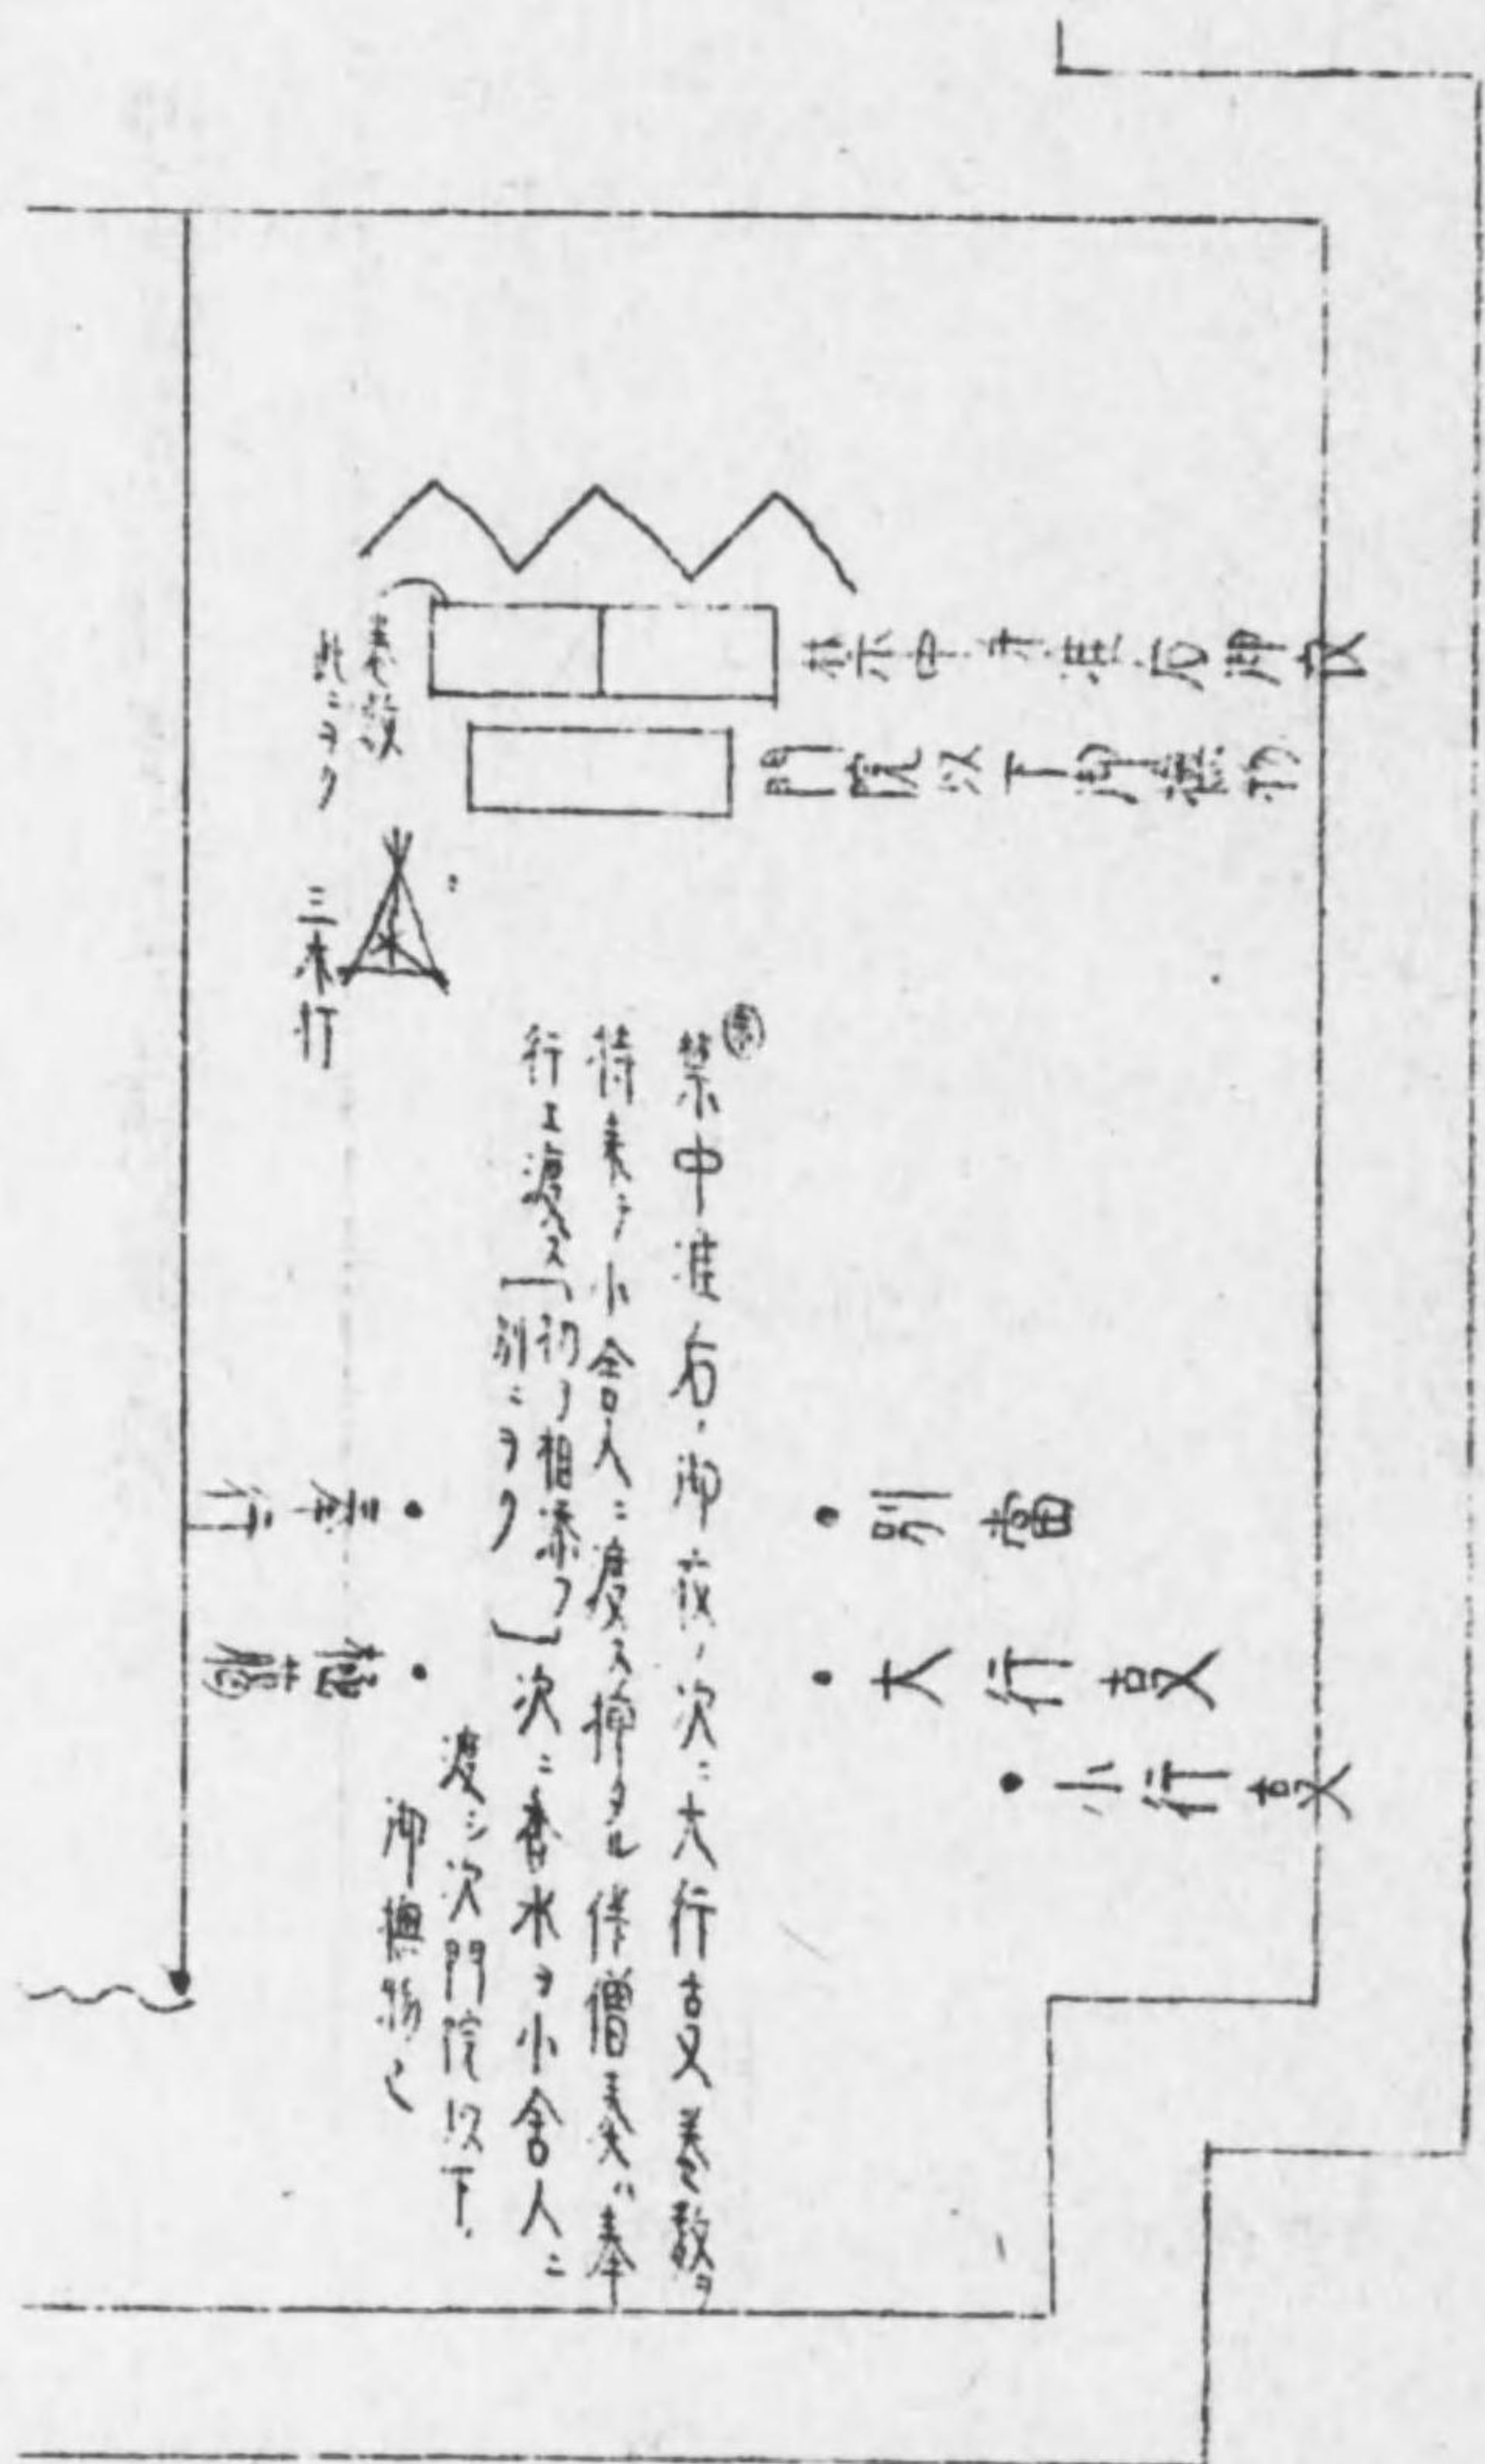 禁中并准后御衣
門院以下御撫物
巻数
此ニヲク
三本灯
禁中准后ノ御衣ノ次ニ大行事巻数ヲ
持来テ小舎人ニ渡ス挿タル伴僧表ハ奉
行エ渡ス「初ノ相添フ
別ニヲク」次ニ香水ヲ小舎人ニ
渡シ次門院以下
御撫物
・別当
・大行事
・小行事
・奉行
・極﨟